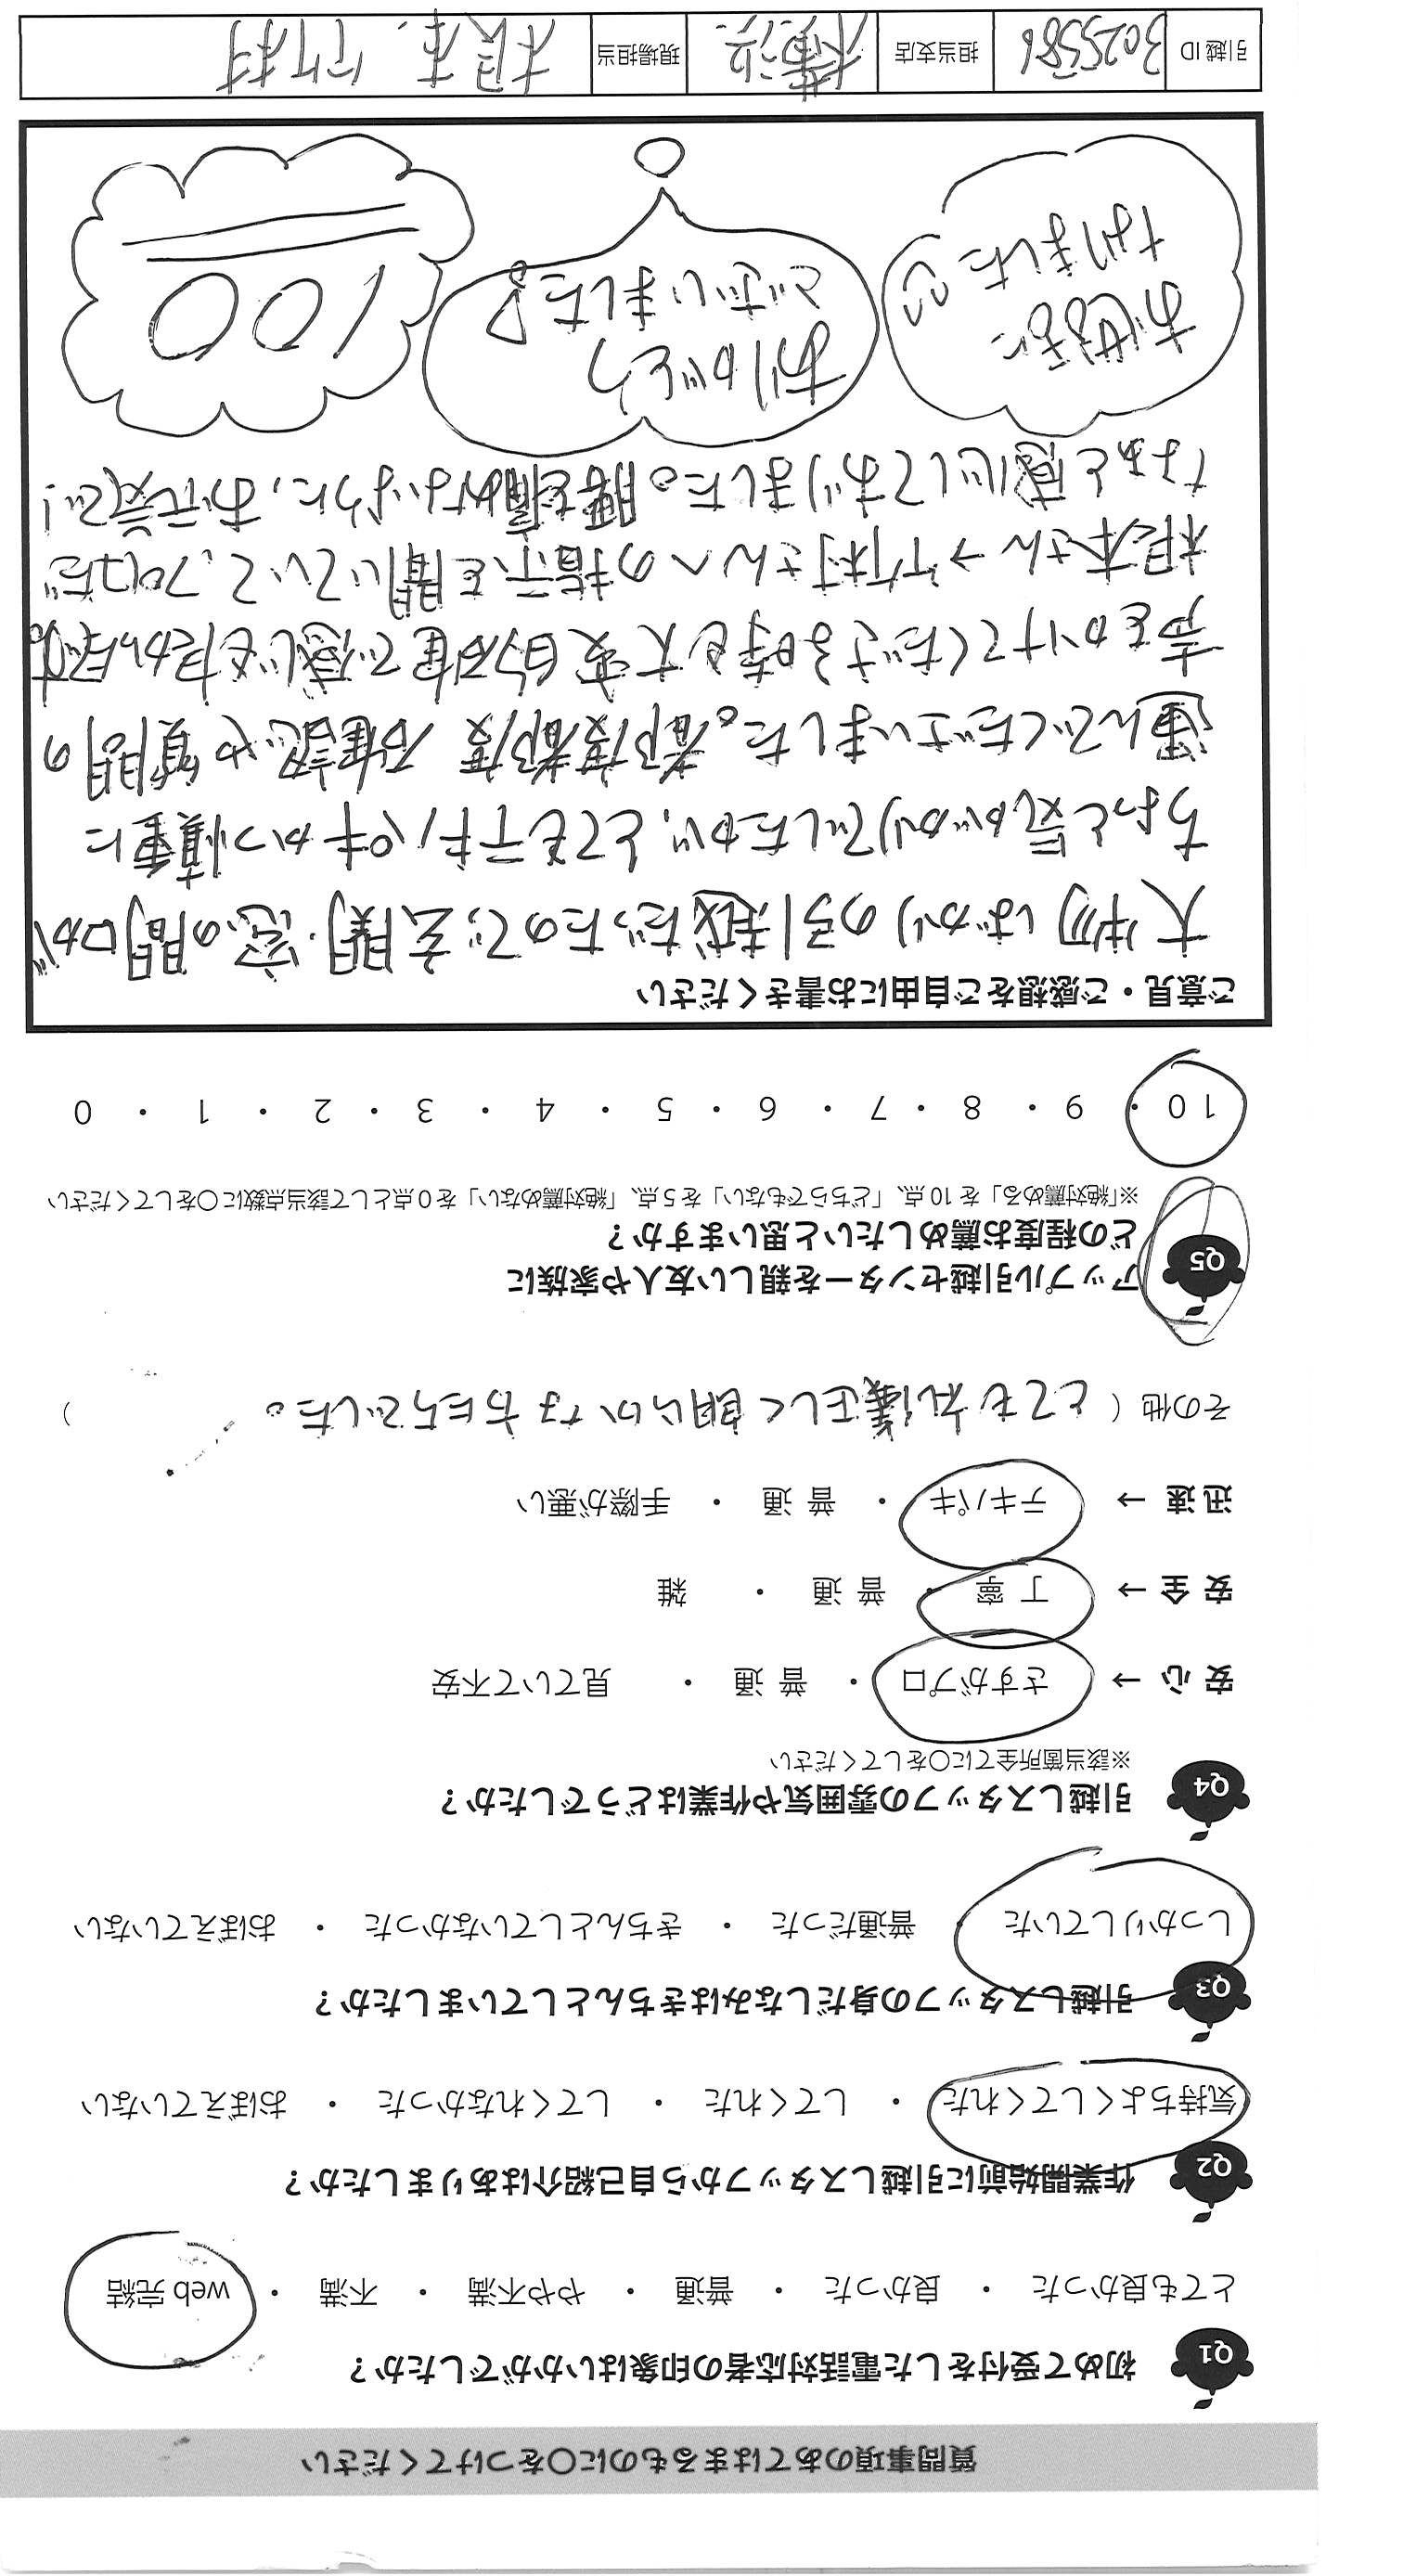 質問事項のあてはまるものに○をつけてください
Q1 初めて受付をした電話対応者の印象はいかがでしたか？
とても良かった ・ 良かった ・ 普通 ・ やや不満 ・ 不満 ・ web 完結
Q2 作業開始前に引越しスタッフから自己紹介はありましたか？
気持ちよくしてくれた ・ してくれた ・ してくれなかった ・ おぼえていない
Q3 引越しスタッフの身だしなみはきちんとしていましたか？
しっかりしていた ・ 普通だった ・ きちんとしていなかった ・ おぼえていない
Q4 引越しスタッフの雰囲気や作業はどうでしたか？
※該当箇所全てに○をしてください
安 心 → さすがプロ ・ 普 通 ・ 見ていて不安
安 全 → 丁 寧 ・ 普 通 ・ 雑
迅 速 → テキパキ ・ 普 通 ・ 手際が悪い
その他 （ とても礼儀正しく朗らかな方たちでした。 ）
Q5 アップル引越センターを親しい友人や家族に
どの程度お薦めしたいと思いますか？
※「絶対薦める」を 10 点、「どちらでもない」を 5 点、「絶対薦めない」を 0 点として該当点数に○をしてください
10 ・ 9 ・ 8 ・ 7 ・ 6 ・ 5 ・ 4 ・ 3 ・ 2 ・ 1 ・ 0
ご意見・ご感想をご自由にお書きください
大物ばかりの引越だったので玄関・窓の間口が
ちょっと気がかりでしたが、とてもテキパキかつ慎重に
運んでくださいました。都度都度 確認や質問の
声をかけてくださる時も大変的確で感じも良かったです。
根本さん→竹村さんへの指示を聞いていて、プロだ
なぁと感心しておりました。腰を痛めないように、お元気で！
お世話に
なりました
ありがとう
ございました
100
引越 ID 3025586 担当支店 横浜 現場担当 根本. 竹村